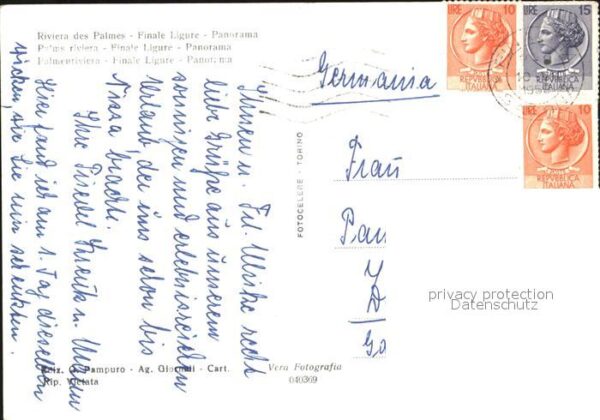 Riviera des Palmes - Finale Ligure - Panorama
Palms riviera - Finale Ligure - Panorama
Palmenriviera - Finale Ligure - Panorama
Ihnen u. Frl. Ulrike recht
liebe Grüße aus unserem
sonnigen und erlebnisreichen
Urlaub der uns schon bis
Nizza brachte.
Ihre Gisela u. Mutter
Hier fand ich am 1. Tag dieselben
wie Sie mir schenkten.
FOTOCELERE - TORINO
Germania
Frau
Pau
Ediz. G. Pampuro - Ag. Giornali - Cart.
Rip. Vietata
Vera Fotografia
040369
LIRE 10
REPVBBLICA
ITALIANA
LIRE 15
REPVBBLICA
ITALIANA
LIRE 10
REPVBBLICA
ITALIANA
privacy protection
Datenschutz